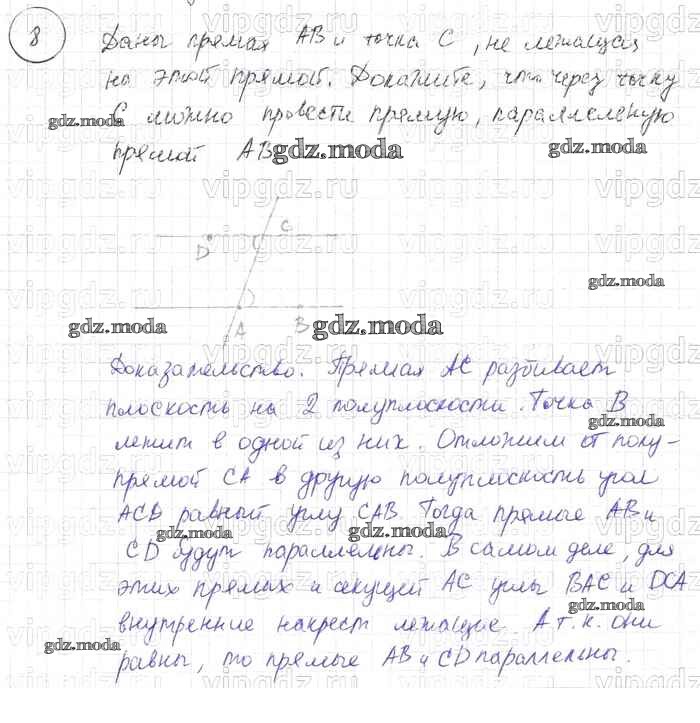 8
Даны прямая АВ и точка С, не лежащая
на этой прямой. Докажите, что через точку
С можно провести прямую, параллельную
прямой АВ
D C
A B
Доказательство. Прямая АС разбивает
плоскость на 2 полуплоскости. Точка В
лежит в одной из них. Отложим от полу-
прямой СА в другую полуплоскость угол
АСD равный углу САВ. Тогда прямые АВ и
CD будут параллельны. В самом деле, для
этих прямых и секущей АС углы ВАС и DCA
внутренние накрест лежащие. А т.к. они
равны, то прямые АВ и CD параллельны.
gdz.moda
gdz.moda
gdz.moda
gdz.moda
gdz.moda
gdz.moda
gdz.moda
gdz.moda
gdz.moda
gdz.moda
gdz.moda
vipgdz.ru